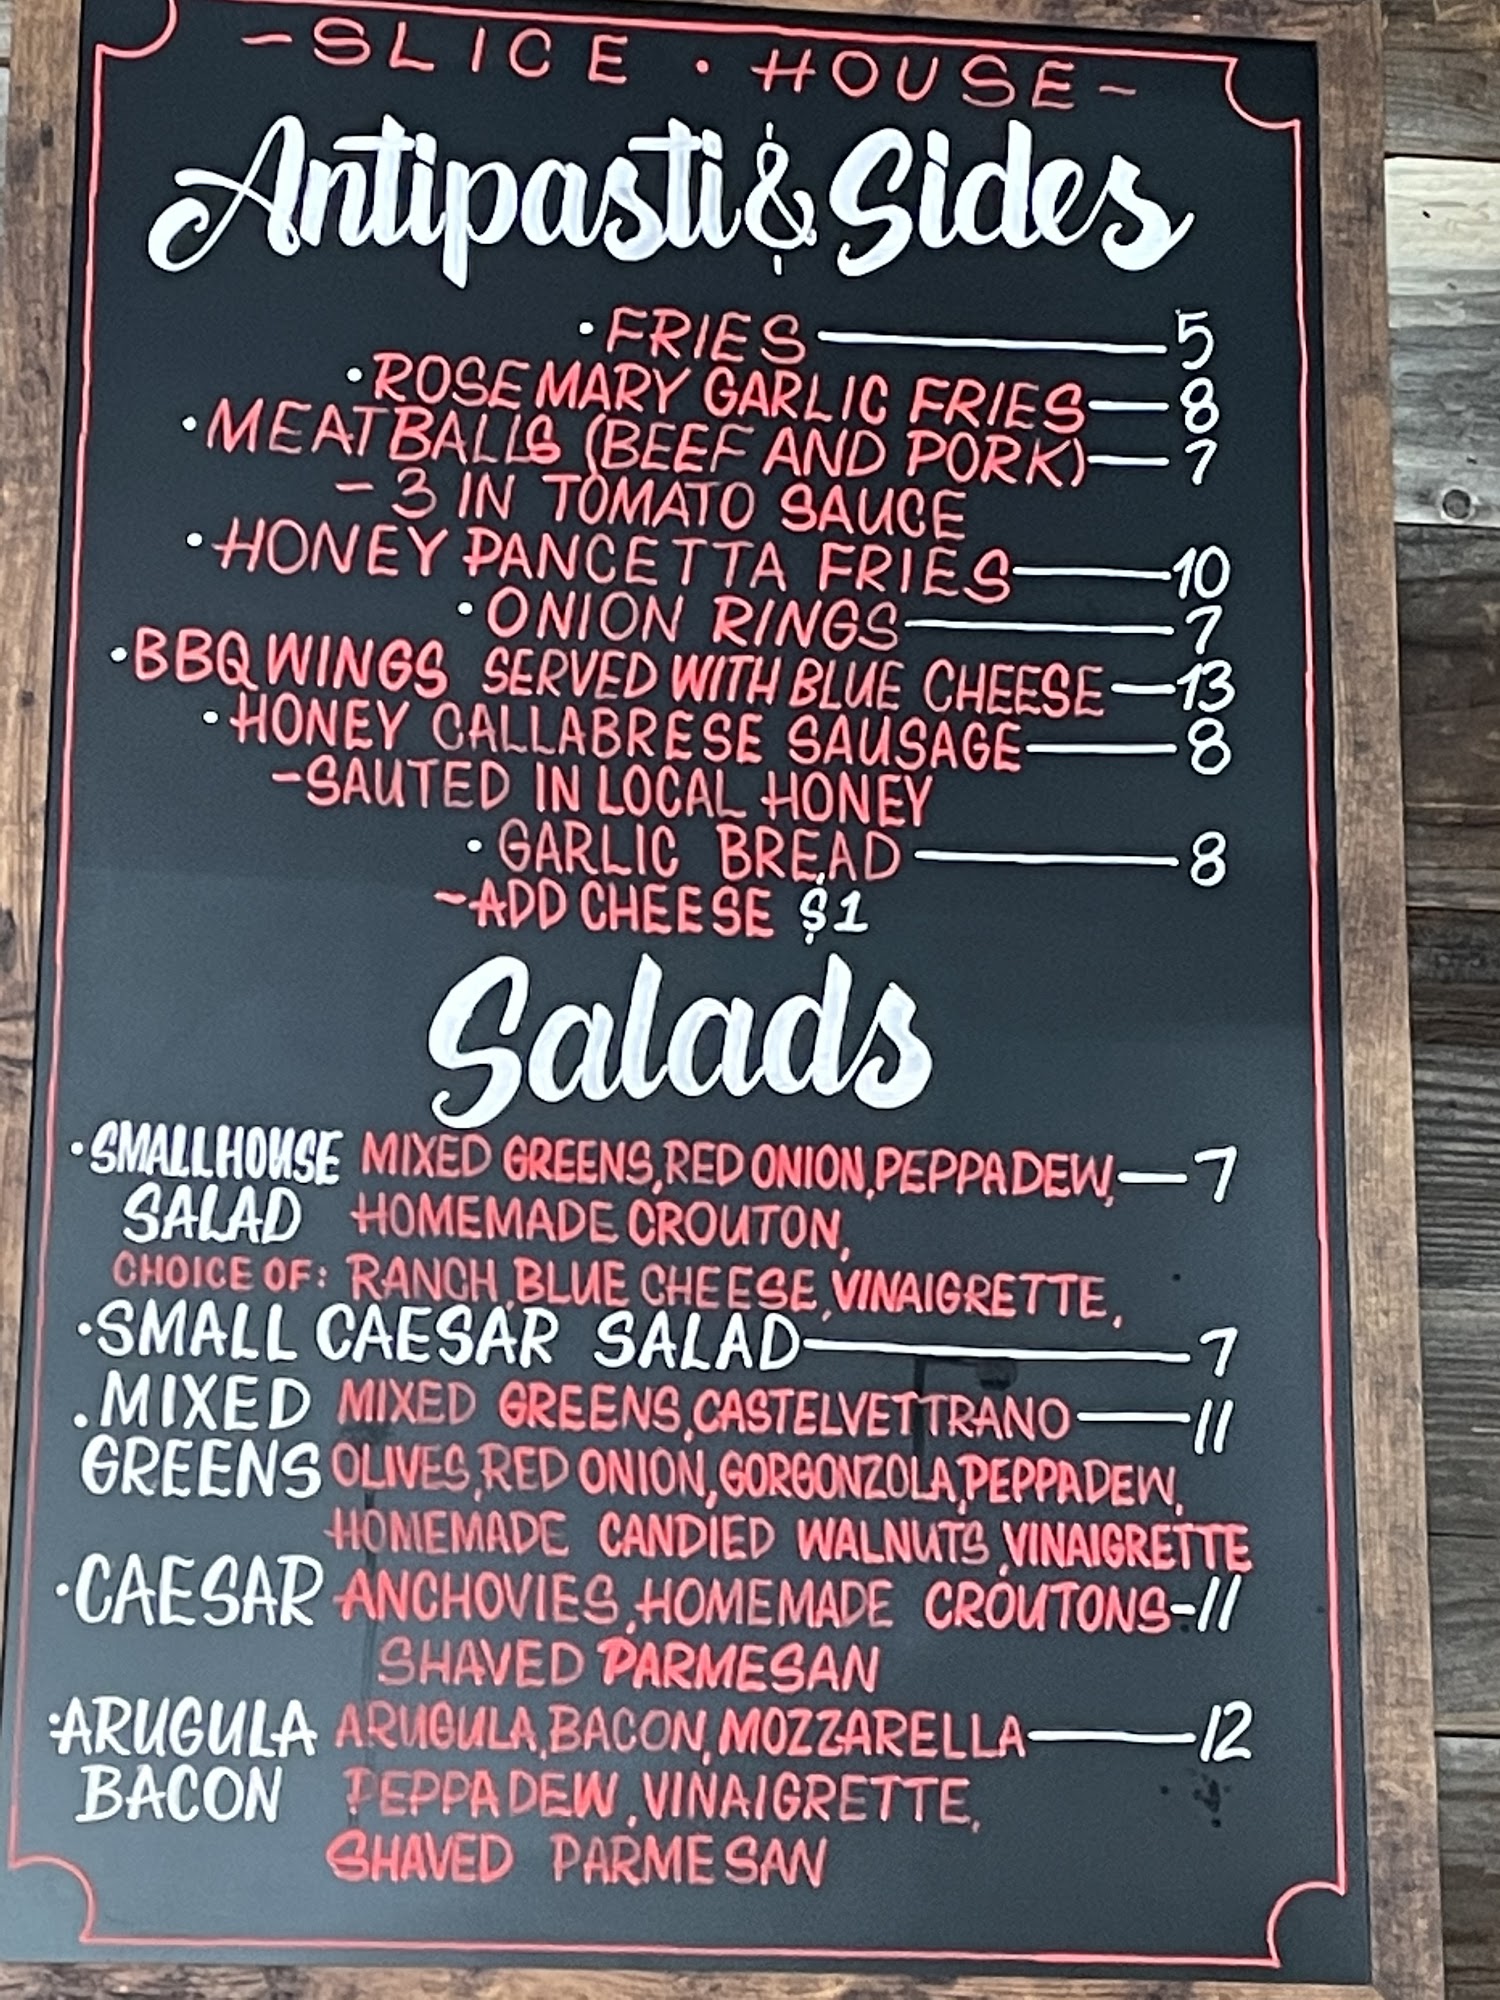 -SLICE · HOUSE-
Antipasti & Sides
· FRIES — 5
· ROSEMARY GARLIC FRIES — 8
· MEATBALLS (BEEF AND PORK) — 7
- 3 IN TOMATO SAUCE
· HONEY PANCETTA FRIES — 10
· ONION RINGS — 7
· BBQ WINGS SERVED WITH BLUE CHEESE — 13
· HONEY CALLABRESE SAUSAGE — 8
- SAUTED IN LOCAL HONEY
· GARLIC BREAD — 8
- ADD CHEESE $1
Salads
· SMALL HOUSE MIXED GREENS, RED ONION, PEPPADEW, — 7
SALAD HOMEMADE CROUTON,
CHOICE OF: RANCH, BLUE CHEESE, VINAIGRETTE,
· SMALL CAESAR SALAD — 7
· MIXED MIXED GREENS, CASTELVETTRANO — 11
GREENS OLIVES, RED ONION, GORGONZOLA, PEPPADEW,
HOMEMADE CANDIED WALNUTS, VINAIGRETTE
· CAESAR ANCHOVIES, HOMEMADE CROUTONS - 11
SHAVED PARMESAN
· ARUGULA ARUGULA, BACON, MOZZARELLA — 12
BACON PEPPADEW, VINAIGRETTE,
SHAVED PARMESAN